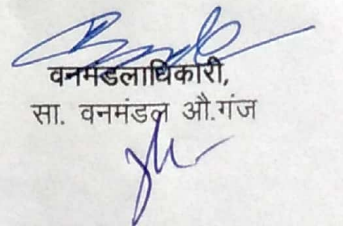 वनमंडलाधिकारी,
सा. वनमंडल औ.गंज